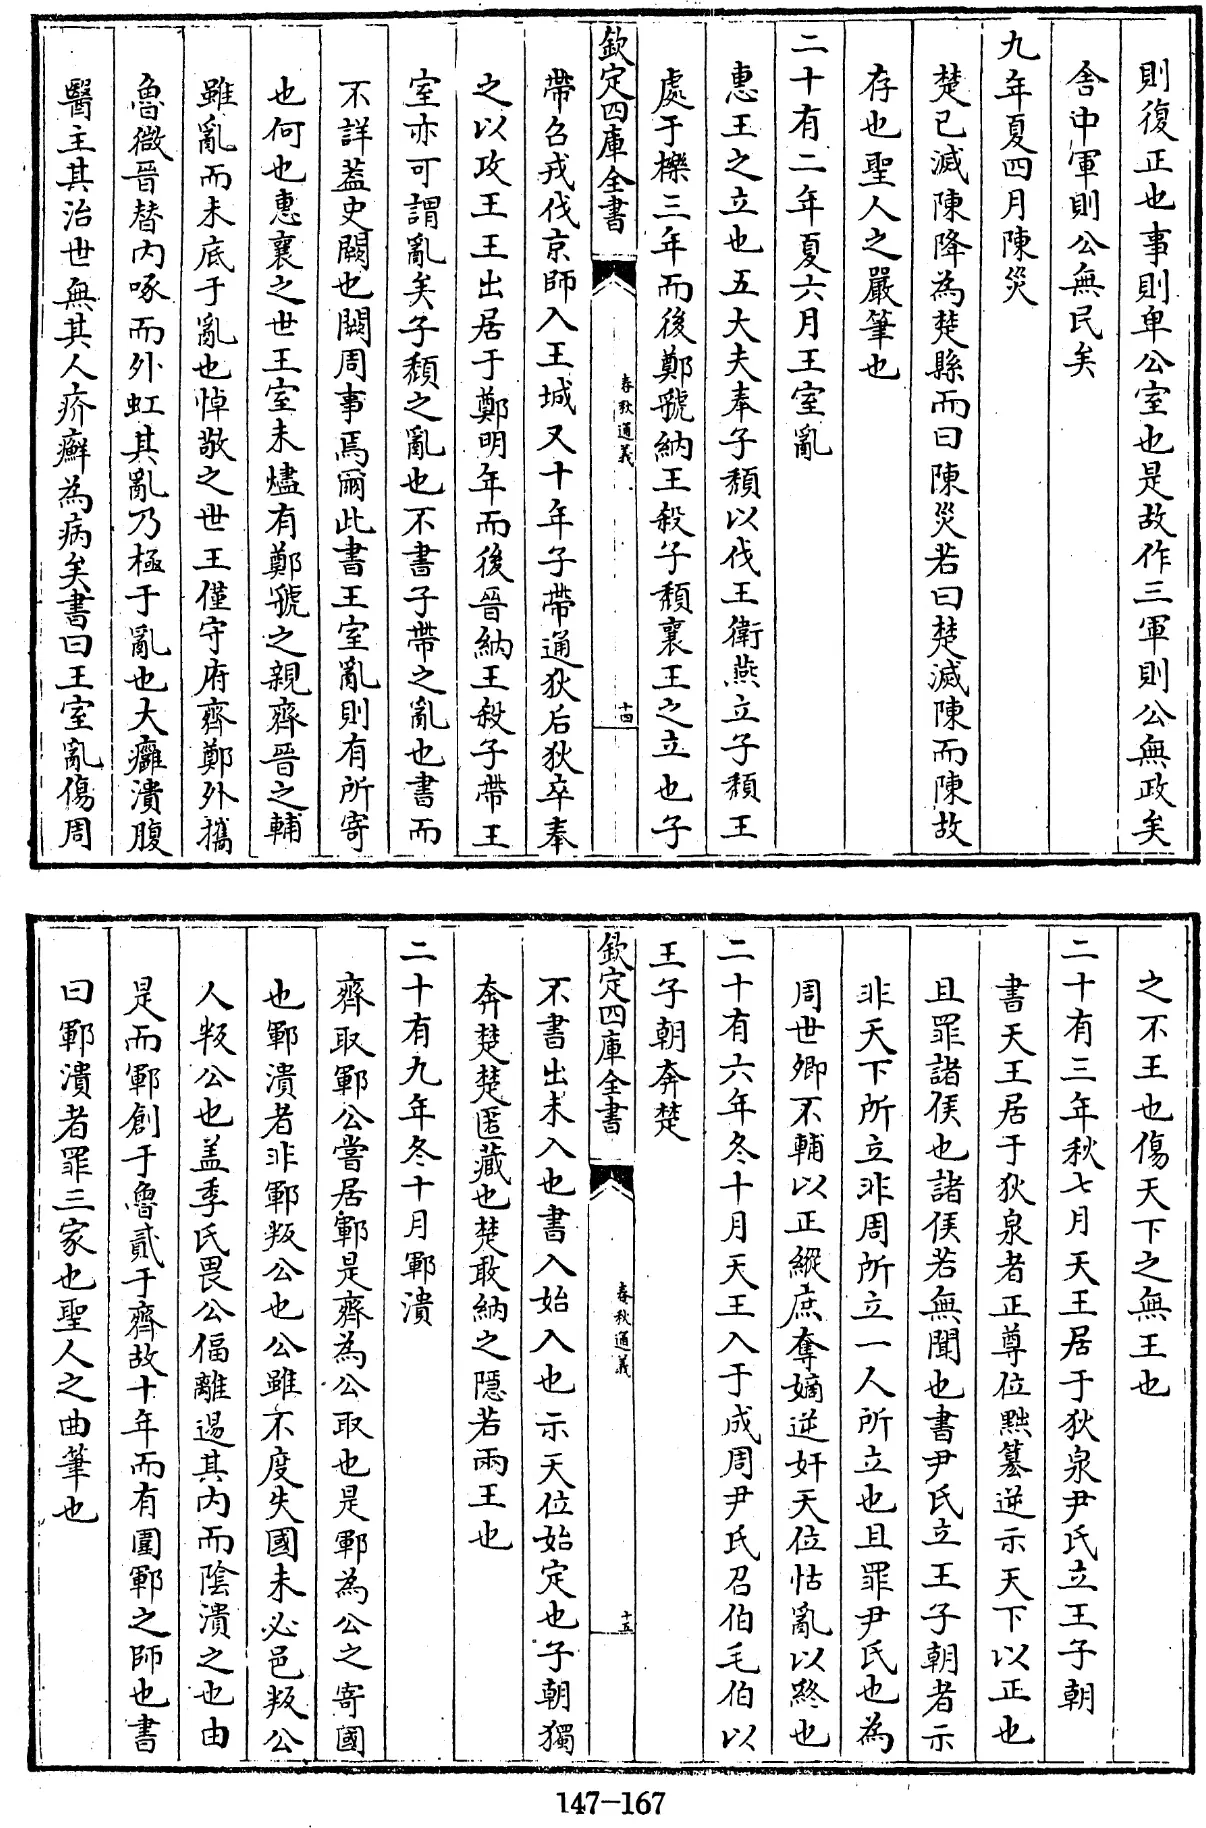 則復正也事則卑公室也是故作三軍則公無政矣
舍中軍則公無民矣
九年夏四月陳災
楚已滅陳降為楚縣而曰陳災若曰楚滅陳而陳故
存也聖人之嚴筆也
二十有二年夏六月王室亂
惠王之立也五大夫奉子頹以伐王衛燕立子頹王
處于櫟三年而後鄭虢納王殺子頹襄王之立也子
欽定四庫全書
春秋通義
十四
帶召戎伐京師入王城又十年子帶通狄后狄卒奉
之以攻王王出居于鄭明年而後晉納王殺子帶王
室亦可謂亂矣子頹之亂也不書子帶之亂也書而
不詳葢史闕也闕周事焉爾此書王室亂則有所寄
也何也惠襄之世王室未燼有鄭虢之親齊晉之輔
雖亂而未底于亂也悼敬之世王僅守府齊鄭外攜
魯微晉替内啄而外虹其亂乃極于亂也大癰潰腹
醫主其治世無其人疥癬為病矣書曰王室亂傷周
之不王也傷天下之無王也
二十有三年秋七月天王居于狄泉尹氏立王子朝
書天王居于狄泉者正尊位黜簒逆示天下以正也
且罪諸侯也諸侯若無聞也書尹氏立王子朝者示
非天下所立非周所立一人所立也且罪尹氏也為
周世卿不輔以正縱庶奪嫡逆奸天位怙亂以終也
二十有六年冬十月天王入于成周尹氏召伯毛伯以
王子朝奔楚
欽定四庫全書
春秋通義
十五
不書出未入也書入始入也示天位始定也子朝獨
奔楚楚匿藏也楚敢納之隱若兩王也
二十有九年冬十月鄆潰
齊取鄆公嘗居鄆是齊為公取也是鄆為公之寄國
也鄆潰者非鄆叛公也公雖不度失國未必邑叛公
人叛公也盖季氏畏公偪離逷其内而陰潰之也由
是而鄆創于魯貳于齊故十年而有圍鄆之師也書
曰鄆潰者罪三家也聖人之曲筆也
147-167